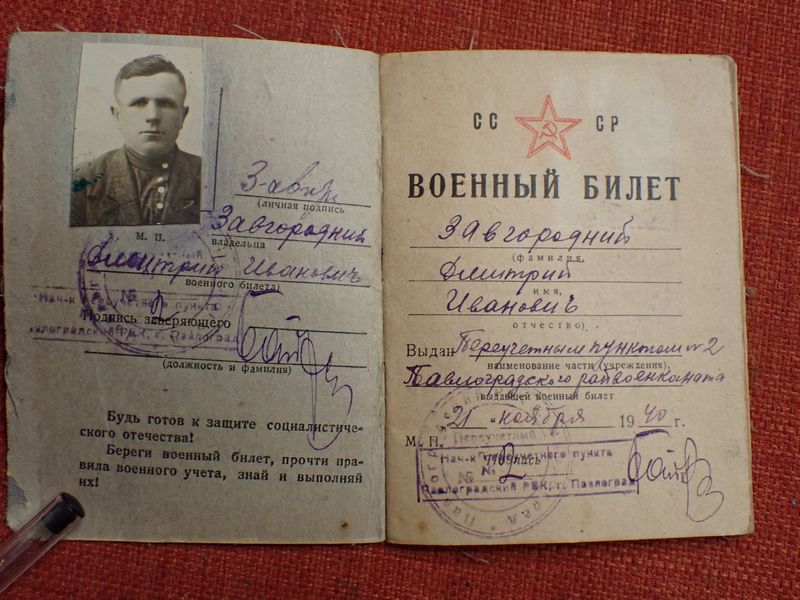 (личная подпись
Завгородний
владельца
Дмитрий Ивановичъ
военного билета)
М. П.
№ 2
Нач-к Переучетного пункта
Подпись заверяющего
Павлоградский РВК, г. Павлоград
(должность и фамилия)
Будь готов к защите социалистиче-
ского отечества!
Береги военный билет, прочти пра-
вила военного учета, знай и выполняй
их!
СС СР
ВОЕННЫЙ БИЛЕТ
Завгородний
(фамилия,
Дмитрий
имя,
Ивановичъ
отчество)
Выдан Переучетным пунктом №2
наименование части (учреждения),
Павлоградского райвоенкомата
выдавшей военный билет
21 ноября 1940 г.
М. П.
Переучетный
Нач-к Переучетного пункта
Подпись
№ 2
Павлоградский РВК, г. Павлоград